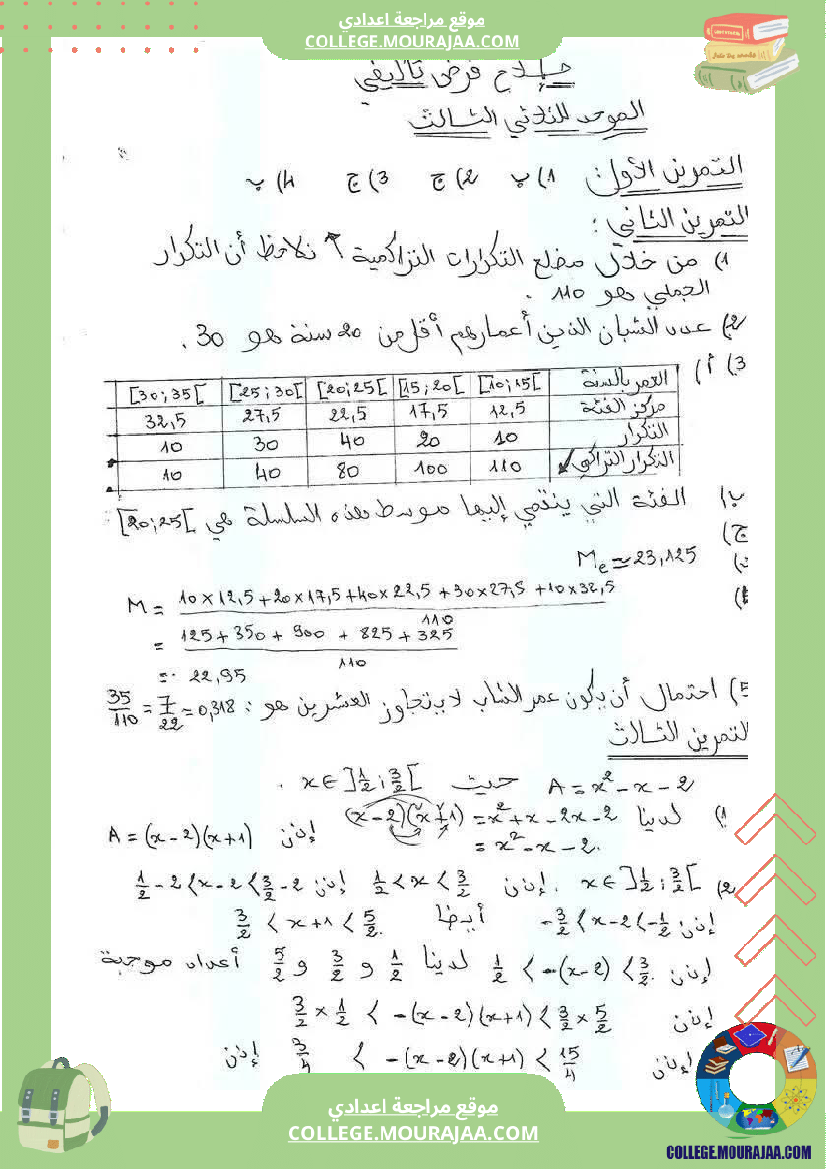 موقع مراجعة اعدادي
COLLEGE.MOURAJAA.COM
إصلاح فرض تأليفي
الموحد للثلاثي الثالث
التمرين الأول: 1) ب 2) ج 3) ج 4) ب
التمرين الثاني:
1) من خلال مضلع التكرارات التراكمية ↗ نلاحظ أن التكرار
الجملي هو 110.
2) عدد الشبان الذين أعمارهم أقل من 20 سنة هو 30.
3) أ)
العمر بالسنة [10;15[ [15;20[ [20;25[ [25;30[ [30;35[
مركز الفئة 12,5 17,5 22,5 27,5 32,5
التكرار 10 20 40 30 10
التكرار التراكمي ↙ 110 100 80 40 10
ب) الفئة التي ينتمي إليها موسط هذه السلسلة هي [20;25[
ج)
Me ≃ 23,125
M = 10×12,5+20×17,5+40×22,5+30×27,5+10×32,5 / 110
= 125+350+900+825+325 / 110
= 22,95
5) احتمال أن يكون عمر الشاب لا يتجاوز العشرين هو: 35/110 = 7/22 = 0,318
التمرين الثالث
A = x² - x - 2 حيث x ∈ ]1/2 ; 3/2[ .
1) لدينا (x-2)(x+1) = x² + x - 2x - 2
= x² - x - 2. إذن A = (x-2)(x+1)
2) x ∈ ]1/2 ; 3/2[ . إذن 1/2 < x < 3/2 إذن 1/2 - 2 < x - 2 < 3/2 - 2
إذن -3/2 < x-2 < -1/2 أيضا 3/2 < x+1 < 5/2.
إذن 1/2 < -(x-2) < 3/2. لدينا 1/2 و 3/2 و 5/2 أعداد موجبة
إذن 3/2 × 1/2 < -(x-2)(x+1) < 3/2 × 5/2
إذن 3/4 < -(x-2)(x+1) < 15/4 إذن
موقع مراجعة اعدادي
COLLEGE.MOURAJAA.COM
COLLEGE.MOURAJAA.COM